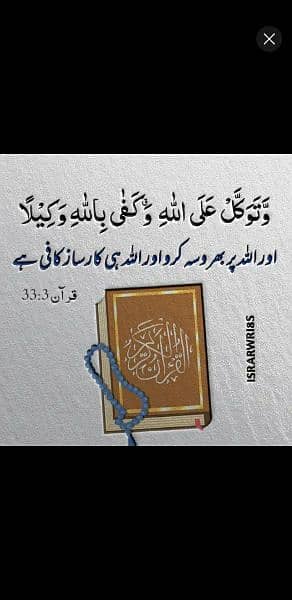 وَّتَوَكَّلْ عَلَى اللهِ ۗ وَكَفٰى بِاللهِ وَكِيْلًا
اور اللہ پر بھروسہ کرو اور اللہ ہی کارساز کافی ہے
قرآن 33:3
القرآن الكريم
ISRARWRI85